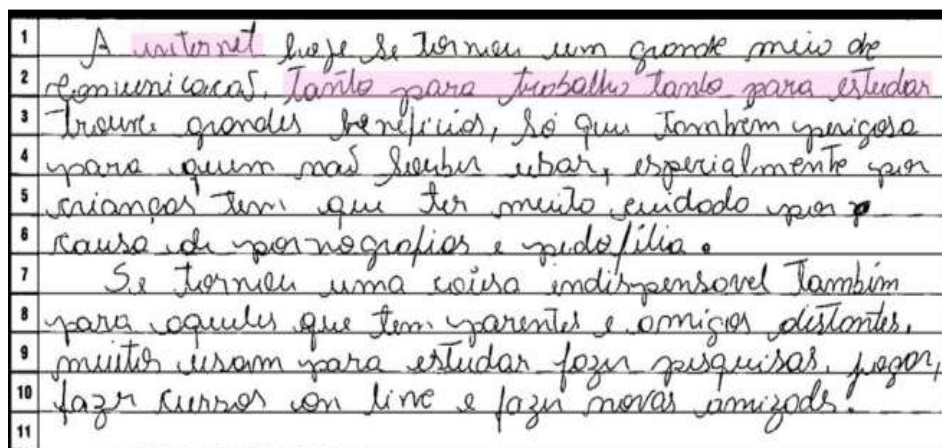 1 A internet hoje se tornou um grande meio de
2 comunicacaõ, tanto para trabalho tanto para estudar
3 trouxe grandes beneficios, só que também perigosa
4 para quem naõ souber usar, especialmente por
5 crianças tem que ter muito cuidado por
6 causa de pornografias e pedofilia.
7 Se tornou uma coisa indispensavel também
8 para aqueles que tem parentes e amigos distantes,
9 muitos usam para estudar fazer pesquisas, jogar,
10 fazr cursos on line e fazer novas amizads.
11